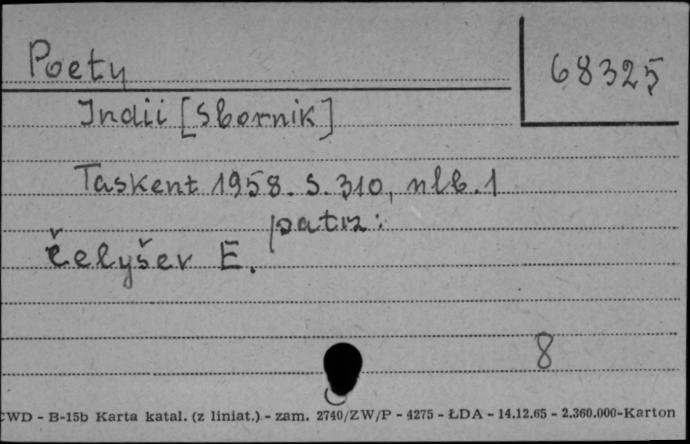 Poety
68325
Indii [Sbornik]
Taskent 1958. S. 310, nlb. 1
patrz:
Čelyšev E.
8
CWD - B-15b Karta katal. (z liniat.) - zam. 2740/ZW/P - 4275 - ŁDA - 14.12.65 - 2.360.000-Karton